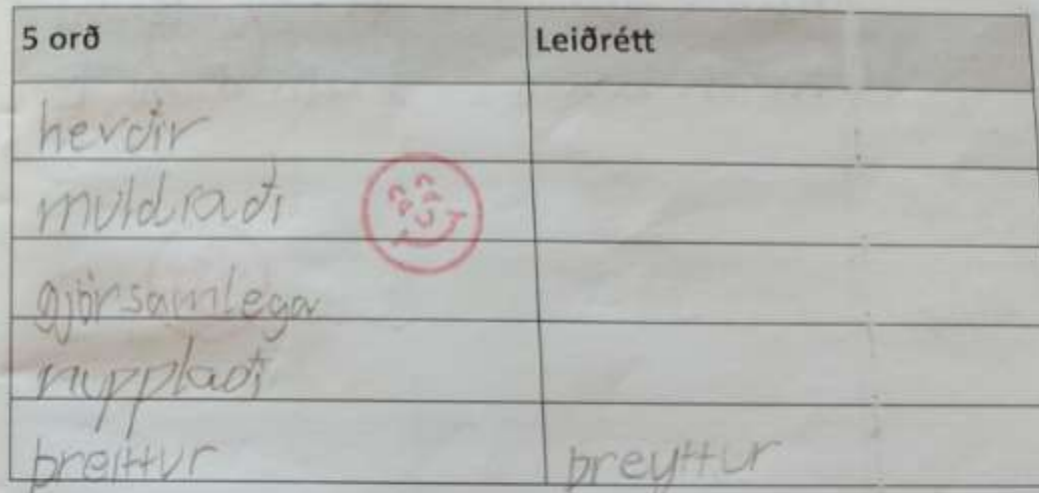 5 orð Leiðrétt
herðir
muldraði
gjörsamlega
nupplaði
þreittur þreyttur